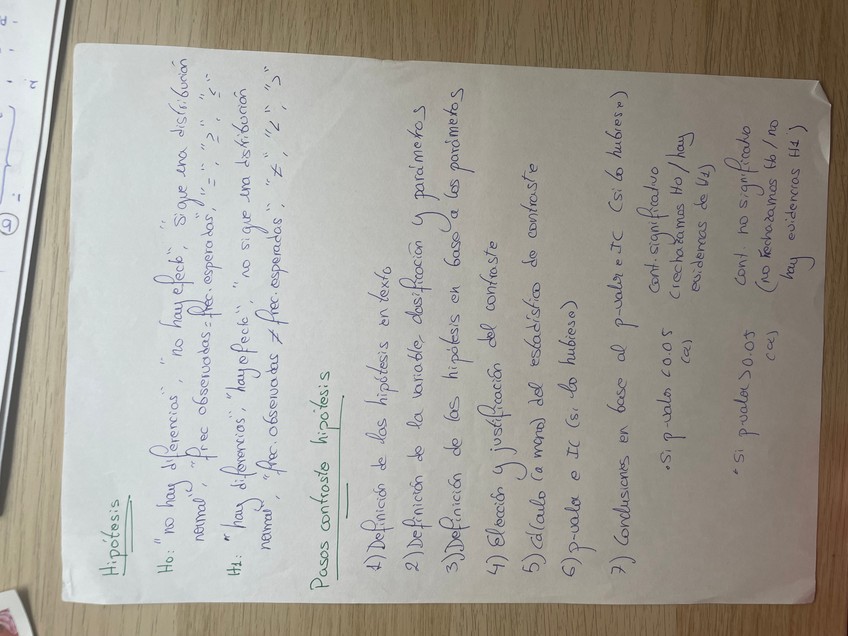 Hipótesis
H0: "no hay diferencias", "no hay efecto", "sigue una distribución
normal", "frec observadas = frec. esperadas", "=", "≥", "≤"
H1: "hay diferencias", "hay efecto", "no sigue una distribución
normal", "frec. observadas ≠ frec. esperadas", "≠", "<", ">"
Pasos contraste hipótesis
1) Definición de las hipótesis en texto
2) Definición de la variable, clasificación y parámetros
3) Definición de las hipótesis en base a los parámetros
4) Elección y justificación del contraste
5) Cálculo (a mano) del estadístico de contraste
6) p-valor e IC (si lo hubiese)
7) Conclusiones en base al p-valor e IC (si lo hubiese)
• Si p-valor < 0.05 Cont. significativo
(α) (rechazamos H0/hay
evidencias de H1)
• Si p-valor > 0.05 Cont. no significativo
(α) (no rechazamos H0/no
hay evidencias H1)